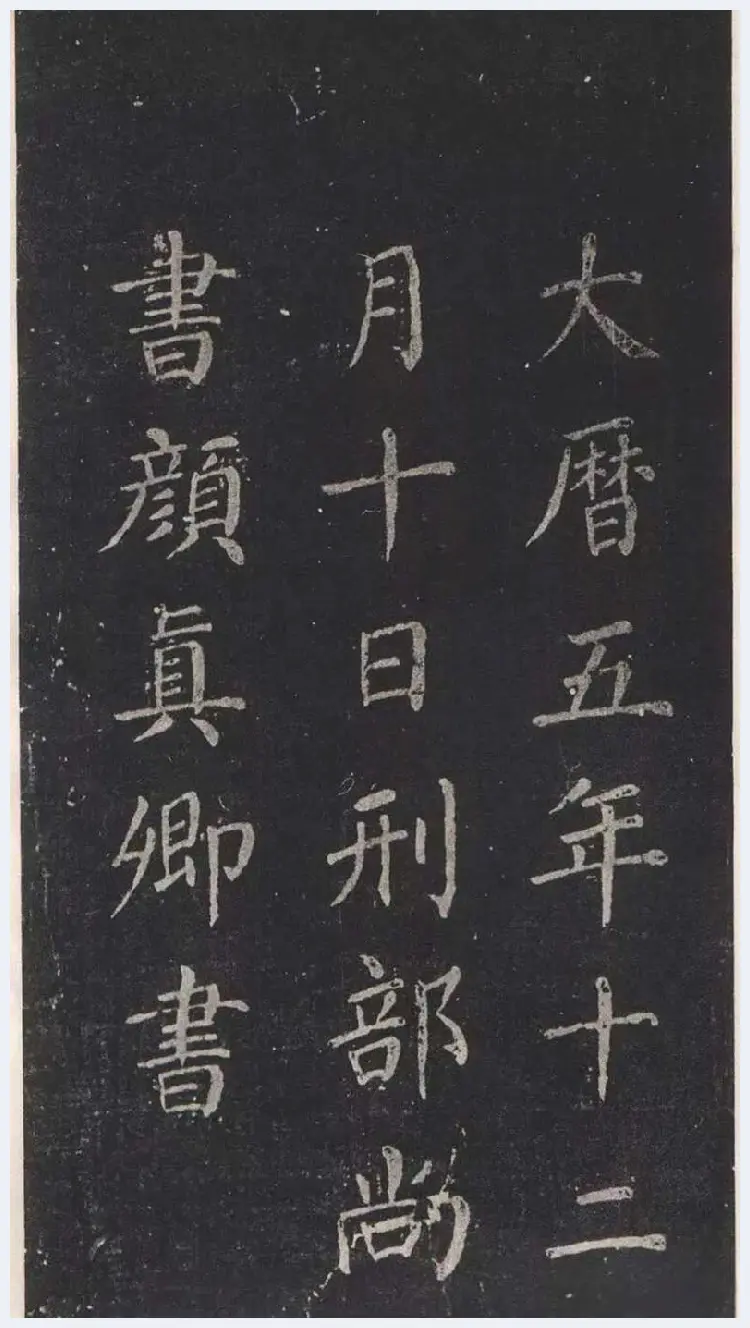 大暦五年十二
月十日刑部尚
書顔眞卿書